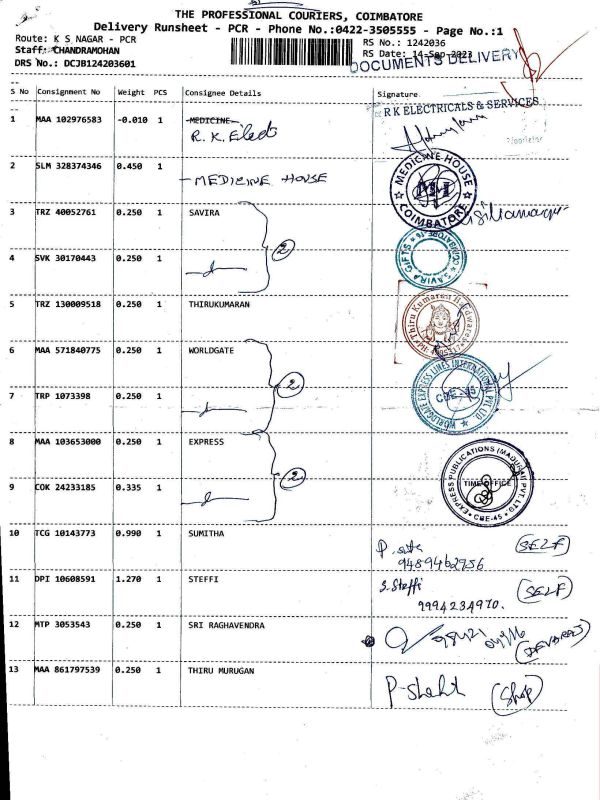 THE PROFESSIONAL COURIERS, COIMBATORE
Delivery Runsheet - PCR - Phone No.:0422-3505555 - Page No.:1
Route: K S NAGAR - PCR
RS No.: 1242036
Staff: CHANDRAMOHAN
RS Date: 14-Sep-2023
DRS No.: DCJB124203601
DOCUMENTS DELIVERY
S No Consignment No Weight PCS Consignee Details Signature
1 MAA 102976583 -0.010 1 MEDICINE
R.K. Elect
R K ELECTRICALS & SERVICES
Proprietor
2 SLM 328374346 0.450 1
- MEDICINE HOUSE
MEDICINE HOUSE
MH
COIMBATORE
3 TRZ 40052761 0.250 1 SAVIRA
2
4 SVK 30170443 0.250 1
SAVIRA GIFTS
COIMBATORE
5 TRZ 130009518 0.250 1 THIRUKUMARAN
Thiru Kumaran Hardwares
6 MAA 571840775 0.250 1 WORLDGATE
2
7 TRP 1073398 0.250 1
WORLDGATE EXPRESS LINES INTERNATIONAL PVT LTD
CBE-45
8 MAA 103653000 0.250 1 EXPRESS
2
9 COK 24233185 0.335 1
EXPRESS PUBLICATIONS (MADURAI) PVT. LTD.
TIME OFFICE
CBE-45
10 TCG 10143773 0.990 1 SUMITHA
(SELF)
9489462956
11 DPI 10608591 1.270 1 STEFFI
S. Steffi (SELF)
9994234970.
12 MTP 3053543 0.250 1 SRI RAGHAVENDRA
98421
13 MAA 861797539 0.250 1 THIRU MURUGAN
(Shop)